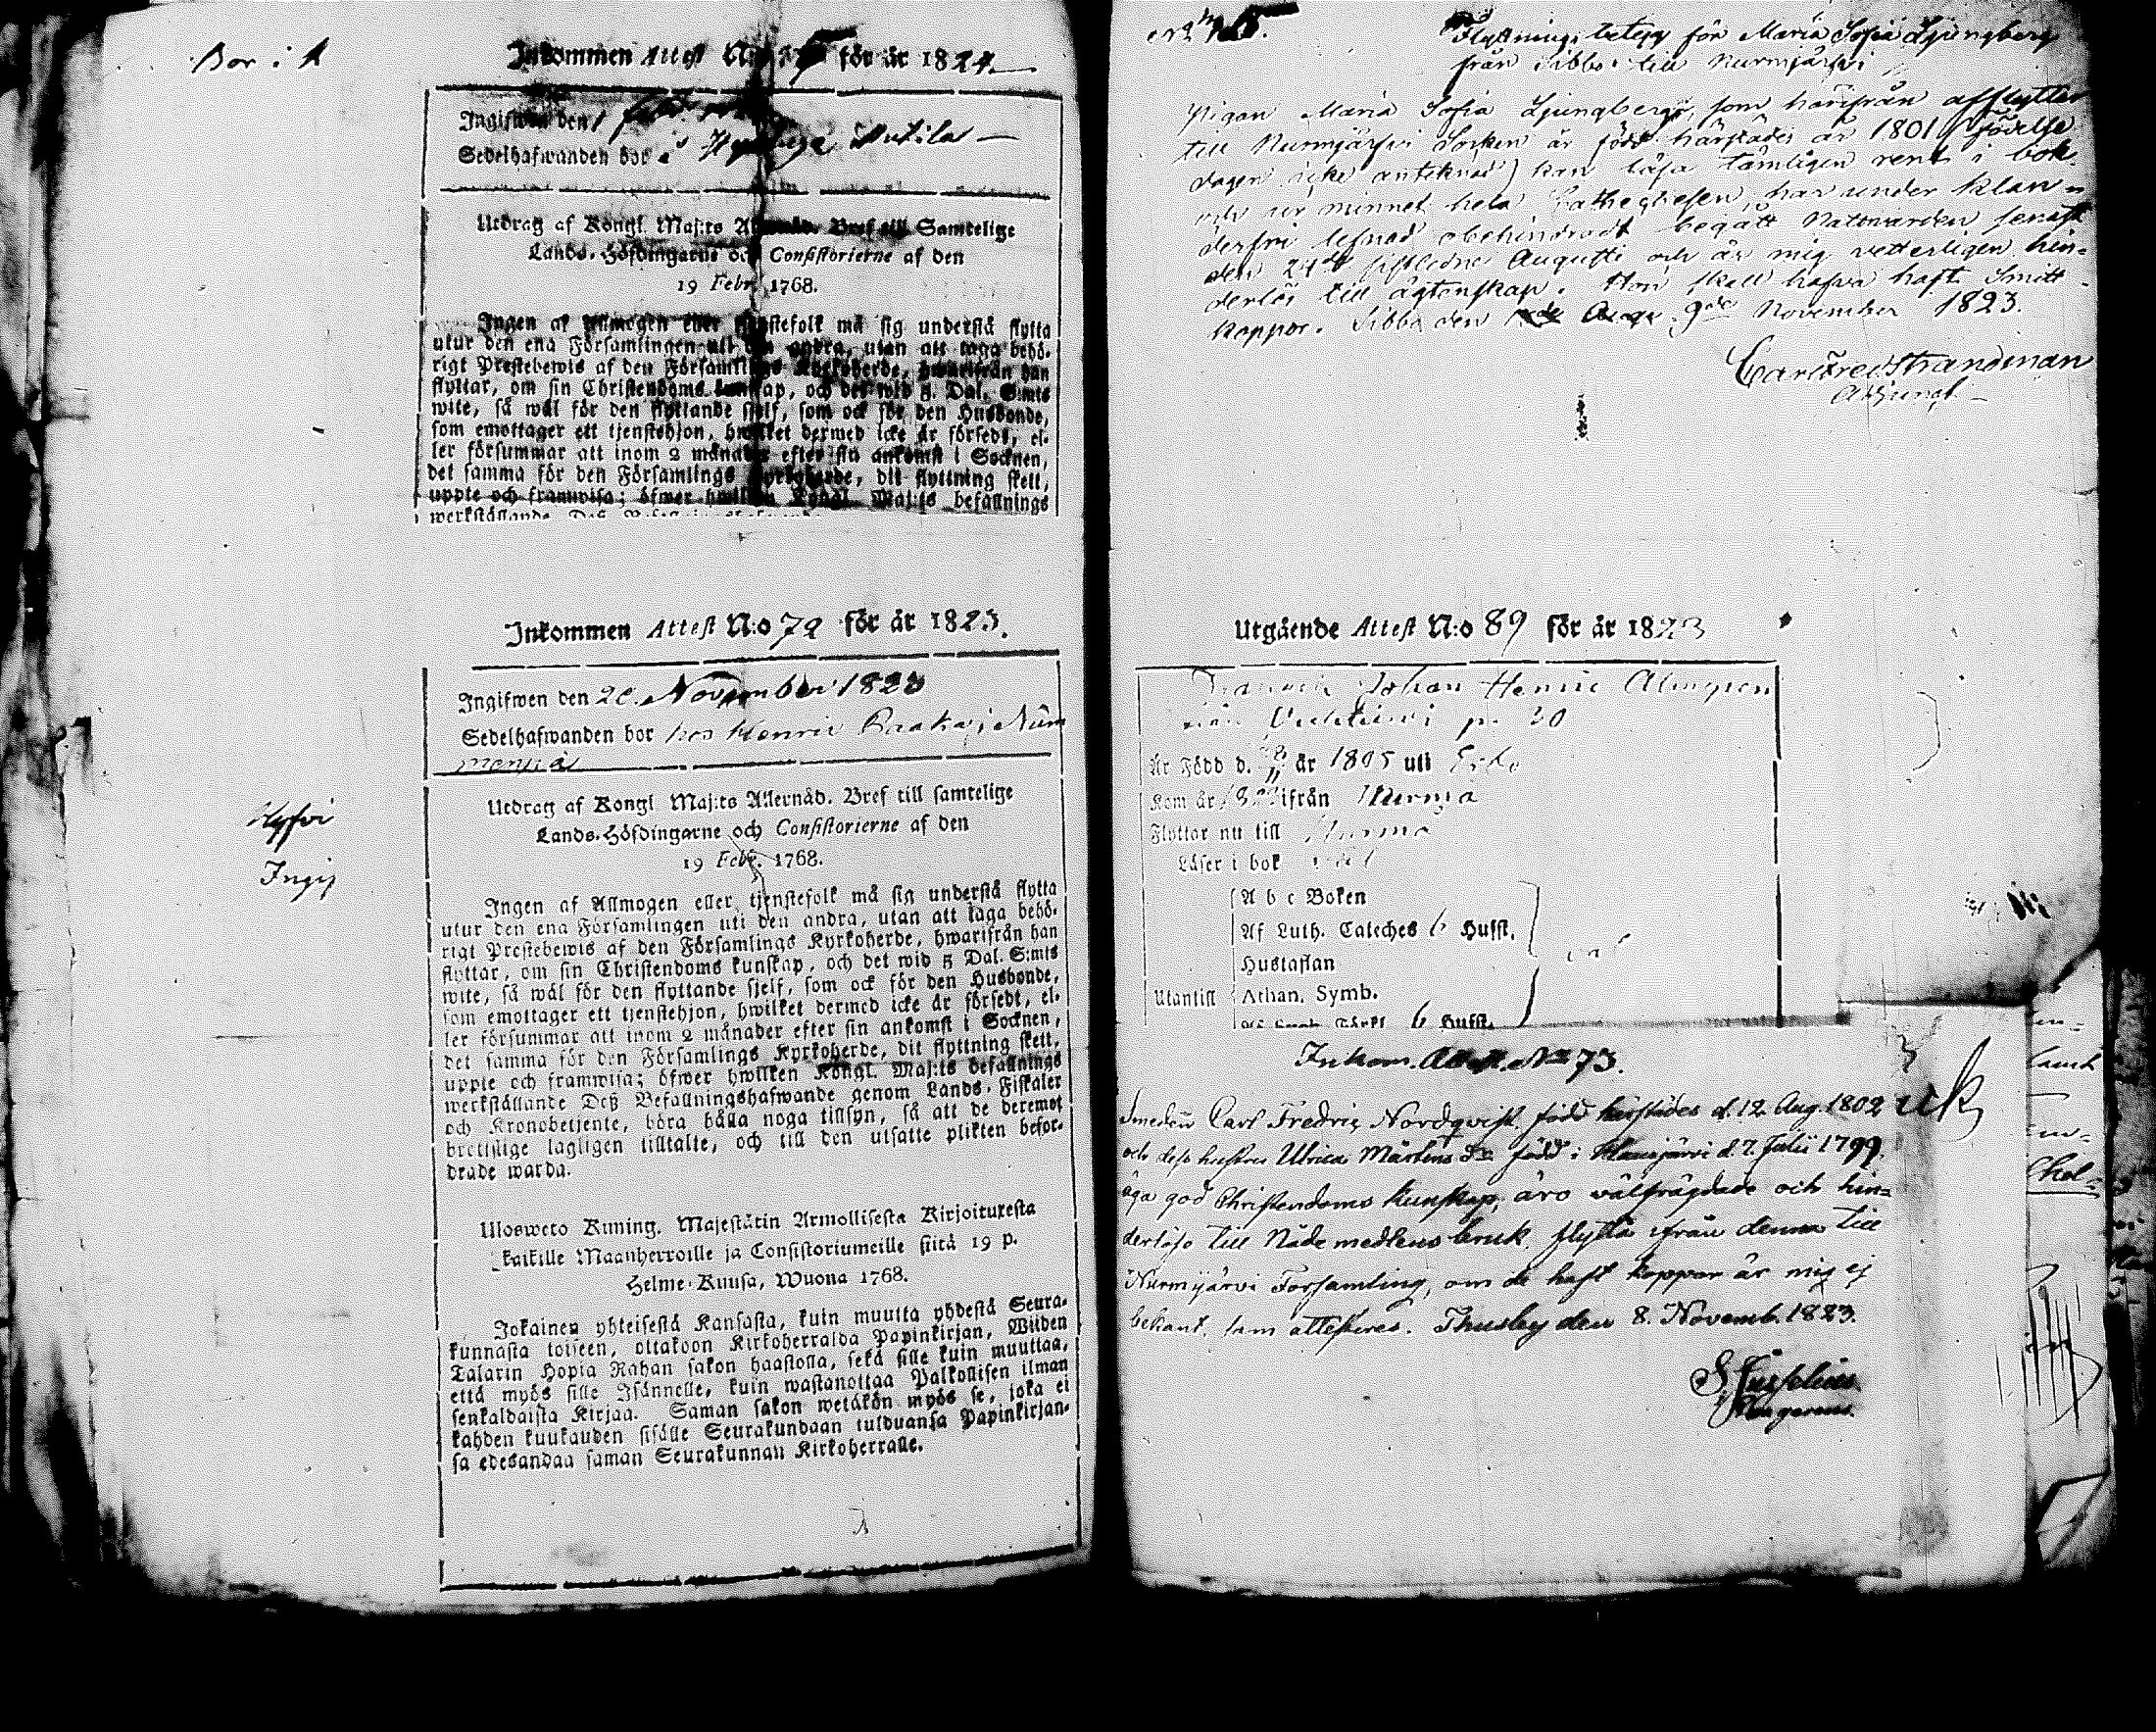 Bor i
Inkommen Attest N:o för år 1824.
Ingifwen den 1
Sedelhafwanden bor
Utdrag af Kongl. Maj:ts Allernåd. Bref till Samtelige
Lands-Höfdingarne och Consistorierne af den
19 Febr. 1768.
Ingen af Allmogen eller tjenstefolk må sig understå flytta
utur den ena Församlingen uti den andra, utan att taga behö-
rigt Prestebewis af den Församlings Kyrkoherde, hwarifrån han
flyttar, om sin Christendoms kunskap, och det wid 5 Dal. S:mts
wite, så wäl för den flyttande sjelf, som ock för den Husbonde,
som emottager ett tjenstehjon, hwilket dermed icke är försedt, el-
ler försummar att inom 2 månader efter sin ankomst i Socknen,
det samma för den Församlings Kyrkoherde, dit flyttning skett,
uppte och framwisa; öfwer hwilken Kongl. Maj:ts befallnings
Inkommen Attest N:o 72 för år 1823.
Ingifwen den 20. November 1823
Sedelhafwanden bor hos Henric i Num
Utdrag af Kongl Maj:ts Allernåd. Bref till samtelige
Lands-Höfdingarne och Consistorierne af den
19 Febr. 1768.
Ingen af Allmogen eller tjenstefolk må sig understå flytta
utur den ena Församlingen uti den andra, utan att taga behö-
rigt Prestebewis af den Församlings Kyrkoherde, hwarifrån han
flyttar, om sin Christendoms kunskap, och det wid 5 Dal. S:mts
wite, så wäl för den flyttande sjelf, som ock för den Husbonde,
som emottager ett tjenstehjon, hwilket dermed icke är försedt, el-
ler försummar att inom 2 månader efter sin ankomst i Socknen,
det samma för den Församlings Kyrkoherde, dit flyttning skett,
uppte och framwisa; öfwer hwilken Kongl. Maj:ts befallnings
werkställande Deß Befallningshafwande genom Lands-Fiskaler
och Kronobetjente, böra hålla noga tillsyn, så att de deremot
brottslige lagligen tilltalte, och till den utsatte plikten befor-
drade warda.
Ulosweto Kuning. Majestätin Armollisesta Kirjoituxesta
kaikille Maanherroille ja Consistoriumeille siitä 19 p.
Helme-Kuusa, Wuona 1768.
Jokainen yhteisestä Kansasta, kuin muutta yhdestä Seura-
kunnasta toiseen, ottakoon Kirkoherralda Papinkirjan, Wiiden
Talarin Hopia Rahan sakon haastolla, sekä sille kuin muuttaa,
että myös sille Isännelle, kuin wastanottaa Palkollisen ilman
senkaldaista Kirjaa. Saman sakon wetäkön myös se, joka ei
kahden kuukauden sisälle Seurakundaan tulduansa Papinkirjan-
sa edesandaa saman Seurakunnan Kirkoherralle.
Flyttnings betyg för Maria Sofia Ljungberg
från Sibbo till Nurmjärfvi
Pigan Maria Sofia Ljungberg, som härifrån afflyttar
till Nurmjärfvi Socken är född härstädes år 1801 (födelse
dagen icke antecknad) kan läsa tämligen rent i bok
och ur minnet hela Cathechesen, har under klan-
derfri lefnad obehindradt begått Nattvarden senast
den 24de sistledne Augusti och är mig vetterligen hin-
derlös till ägtenskap. Hon skall hafva haft Smitt-
koppor. Sibbo den 9de November 1823.
Carl Fred Strandman
Adjunct
Utgående Attest N:o 89 för år 1823
Johan Henric
p. 20
Är Född d. år 1805 uti
Kom år ifrån Nurmja
Flyttar nu till Nurmo
Läser i bok
A b c Boken
Af Luth. Cateches 6 Hufst.
Hustaflan
Utantill Athan. Symb.
6 Hufst.
Inkom. Attest. No 73.
Smeden Carl Fredric Nordqvist, född härstädes d. 12. Aug. 1802
och dess hustru Ulrica Mårtens dr född i Hausjärvi d. 7. Julii 1799.
äga god Christendoms kunskap, äro välfrägdade och hin-
derlöse till Nådemedlens bruk, flytta ifrån denna till
Nurmijärvi Församling, om de haft koppor är mig ej
bekant, som attesteres. Thusby den 8. Novemb. 1823.